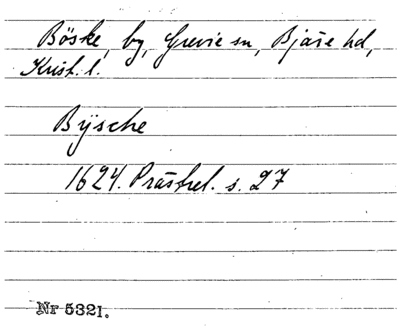 Böske, by, Grevie sn, Bjäre hd,
Krist. l.
Bÿsche
1624. Prästrel. s. 27
Nr 5321.